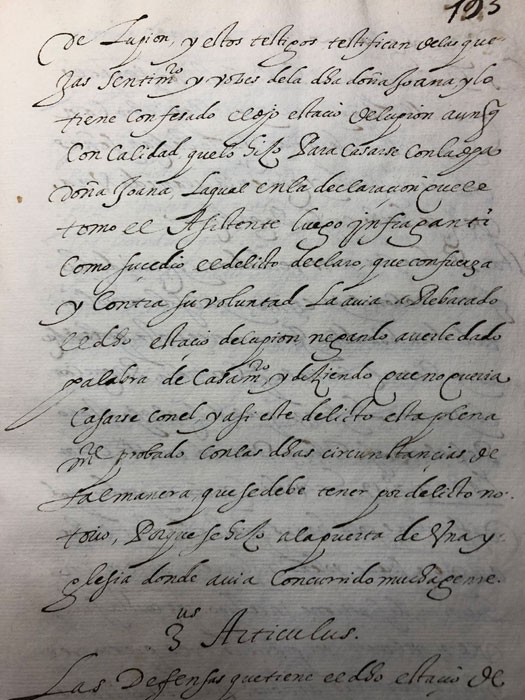 193
de Lupion, y estos testigos testifican de las que
xas sentim.to y vozes de la dha doña Joana, y lo
tiene confesado el dho estacio de lupion aunq
con calidad que lo hizo Para Casarse con la dha
Doña Joana, La qual en la declaracion que le
tomo el Asistente luego infraganti
como sucedio el delicto declaro, que con fuerça
y Contra su voluntad La avia arrebatado
el dho estacio de lupion negando averle dado
palabra de Casam.to, y diziendo que no queria
Casarse con el. y asi este delicto esta plena
m.te probado con las dhas circunstancias de
tal manera, que se debe tener por delicto no-
torio, Porque se hizo a la puerta de Una y-
glesia donde avia Concurrido mucha gente.
3us Articulus.
Las Defensas que tiene el dho estacio de